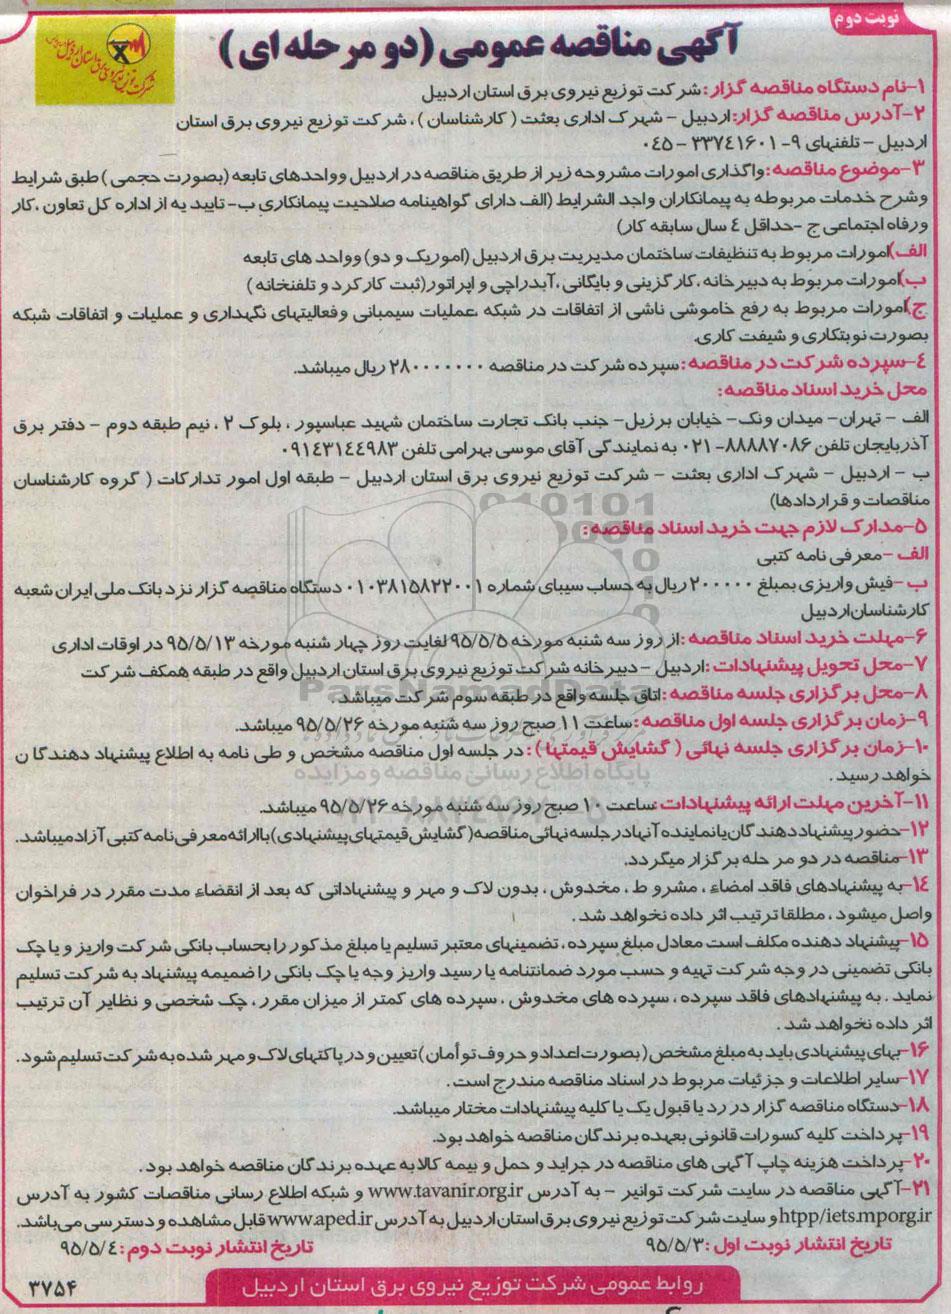 نوبت دوم
آگهی مناقصه عمومی (دو مرحله ای)
شرکت توزیع نیروی برق استان اردبیل
۱-نام دستگاه مناقصه گزار: شرکت توزیع نیروی برق استان اردبیل
۲-آدرس مناقصه گزار:اردبیل - شهرک اداری بعثت (کارشناسان)، شرکت توزیع نیروی برق استان
اردبیل - تلفنهای ۹-۳۳۷٤۱٦۰۱ -۰٤۵
۳-موضوع مناقصه: واگذاری امورات مشروحه زیر از طریق مناقصه در اردبیل وواحدهای تابعه (بصورت حجمی) طبق شرایط
وشرح خدمات مربوطه به پیمانکاران واجد الشرایط (الف دارای گواهینامه صلاحیت پیمانکاری ب- تایید یه از اداره کل تعاون ،کار
ورفاه اجتماعی ج -حداقل ٤ سال سابقه کار)
الف)امورات مربوط به تنظیفات ساختمان مدیریت برق اردبیل (اموریک و دو) وواحد های تابعه
ب)امورات مربوط به دبیرخانه ،کارگزینی و بایگانی ،آبدراچی و اپراتور(ثبت کارکرد و تلفنخانه)
ج)امورات مربوط به رفع خاموشی ناشی از اتفاقات در شبکه ،عملیات سیمبانی وفعالیتهای نگهداری و عملیات و اتفاقات شبکه
بصورت نوبتکاری و شیفت کاری.
٤-سپرده شرکت در مناقصه: سپرده شرکت در مناقصه ۲۸۰۰۰۰۰۰۰ ریال میباشد.
محل خرید اسناد مناقصه:
الف - تهران- میدان ونک- خیابان برزیل- جنب بانک تجارت ساختمان شهید عباسپور ، بلوک ۲ ، نیم طبقه دوم - دفتر برق
آذربایجان تلفن ۸۸۸۸۷۰۸٦-۰۲۱ به نمایندگی آقای موسی بهرامی تلفن ۰۹۱٤۳۱٤٤۹۸۳
ب - اردبیل - شهرک اداری بعثت - شرکت توزیع نیروی برق استان اردبیل - طبقه اول امور تدارکات ( گروه کارشناسان
مناقصات و قراردادها)
۵-مدارک لازم جهت خرید اسناد مناقصه:
الف -معرفی نامه کتبی
ب -فیش واریزی بمبلغ ۲۰۰۰۰۰ ریال به حساب سیبای شماره ۰۱۰۳۸۱۵۸۲۲۰۰۱ دستگاه مناقصه گزار نزد بانک ملی ایران شعبه
کارشناسان اردبیل
٦-مهلت خرید اسناد مناقصه :از روز سه شنبه مورخه ۹۵/۵/۵ لغایت روز چهار شنبه مورخه ۹۵/۵/۱۳ در اوقات اداری
۷-محل تحویل پیشنهادات :اردبیل - دبیرخانه شرکت توزیع نیروی برق استان اردبیل واقع در طبقه همکف شرکت
۸-محل برگزاری جلسه مناقصه: اتاق جلسه واقع در طبقه سوم شرکت میباشد .
۹-زمان برگزاری جلسه اول مناقصه: ساعت ۱۱ صبح روز سه شنبه مورخه ۹۵/۵/۲٦ میباشد.
۱۰-زمان برگزاری جلسه نهائی ( گشایش قیمتها ): در جلسه اول مناقصه مشخص و طی نامه به اطلاع پیشنهاد دهندگان
خواهد رسید .
۱۱-آخرین مهلت ارائه پیشنهادات: ساعت ۱۰ صبح روز سه شنبه مورخه ۹۵/۵/۲٦ میباشد.
۱۲-حضور پیشنهاد دهندگان یا نماینده آنها در جلسه نهائی مناقصه( گشایش قیمتهای پیشنهادی) با ارائه معرفی نامه کتبی آزاد میباشد.
۱۳-مناقصه در دو مرحله برگزار میگردد.
۱٤-به پیشنهادهای فاقد امضاء ، مشروط ، مخدوش ، بدون لاک و مهر و پیشنهاداتی که بعد از انقضاء مدت مقرر در فراخوان
واصل میشود ، مطلقا ترتیب اثر داده نخواهد شد .
۱۵-پیشنهاد دهنده مکلف است معادل مبلغ سپرده ، تضمینهای معتبر تسلیم یا مبلغ مذکور را بحساب بانکی شرکت واریز و یا چک
بانکی تضمینی در وجه شرکت تهیه و حسب مورد ضمانتنامه یا رسید واریز وجه یا چک بانکی را ضمیمه پیشنهاد به شرکت تسلیم
نماید . به پیشنهادهای فاقد سپرده ، سپرده های مخدوش ، سپرده های کمتر از میزان مقرر ، چک شخصی و نظایر آن ترتیب
اثر داده نخواهد شد .
۱٦-بهای پیشنهادی باید به مبلغ مشخص (بصورت اعداد و حروف توأمان) تعیین و در پاکتهای لاک و مهر شده به شرکت تسلیم شود.
۱۷-سایر اطلاعات و جزئیات مربوط در اسناد مناقصه مندرج است .
۱۸-دستگاه مناقصه گزار در رد یا قبول یک یا کلیه پیشنهادات مختار میباشد.
۱۹-پرداخت کلیه کسورات قانونی بعهده برندگان مناقصه خواهد بود.
۲۰-پرداخت هزینه چاپ آگهی های مناقصه در جراید و حمل و بیمه کالا به عهده برندگان مناقصه خواهد بود .
۲۱-آگهی مناقصه در سایت شرکت توانیر - به آدرس www.tavanir.org.ir و شبکه اطلاع رسانی مناقصات کشور به آدرس
htpp/iets.mporg.ir و سایت شرکت توزیع نیروی برق استان اردبیل به آدرس www.aped.ir قابل مشاهده و دسترسی می باشد.
تاریخ انتشار نوبت اول :۹۵/۵/۳ تاریخ انتشار نوبت دوم :۹۵/۵/٤
روابط عمومی شرکت توزیع نیروی برق استان اردبیل
۳۷۵۴
ParsNamadData
پایگاه اطلاع رسانی مناقصه و مزایده